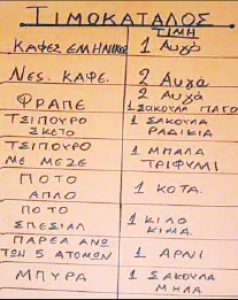 ΤΙΜΟΚΑΤΑΛΟΣ
ΤΙΜΗ
ΚΑΦΕΣ ΕΛΗΝΙΚΟΣ 1 Αυγό
ΝΕΣ. ΚΑΦΕ. 2 Αυγά
ΦΡΑΠΕ 2 Αυγά
1 ΣΑΚΟΥΛΑ ΠΑΓΟ
ΤΣΙΠΟΥΡΟ 1 ΣΑΚΟΥΛΑ
ΣΚΕΤΟ ΡΑΔΙΚΙΑ
ΤΣΙΠΟΥΡΟ 1 ΜΠΑΛΑ
ΜΕ ΜΕΖΕ ΤΡΙΦΥΛΙ
ΠΟΤΟ
ΑΠΛΟ 1 ΚΟΤΑ.
ΠΟΤΟ 1 ΚΙΛΟ
ΣΠΕΣΙΑΛ ΚΙΜΑ.
ΠΑΡΕΑ ΑΝΩ
ΤΩΝ 5 ΑΤΟΜΩΝ 1 ΑΡΝΙ
ΜΠΥΡΑ 1 ΣΑΚΟΥΛΑ
ΜΗΛΑ